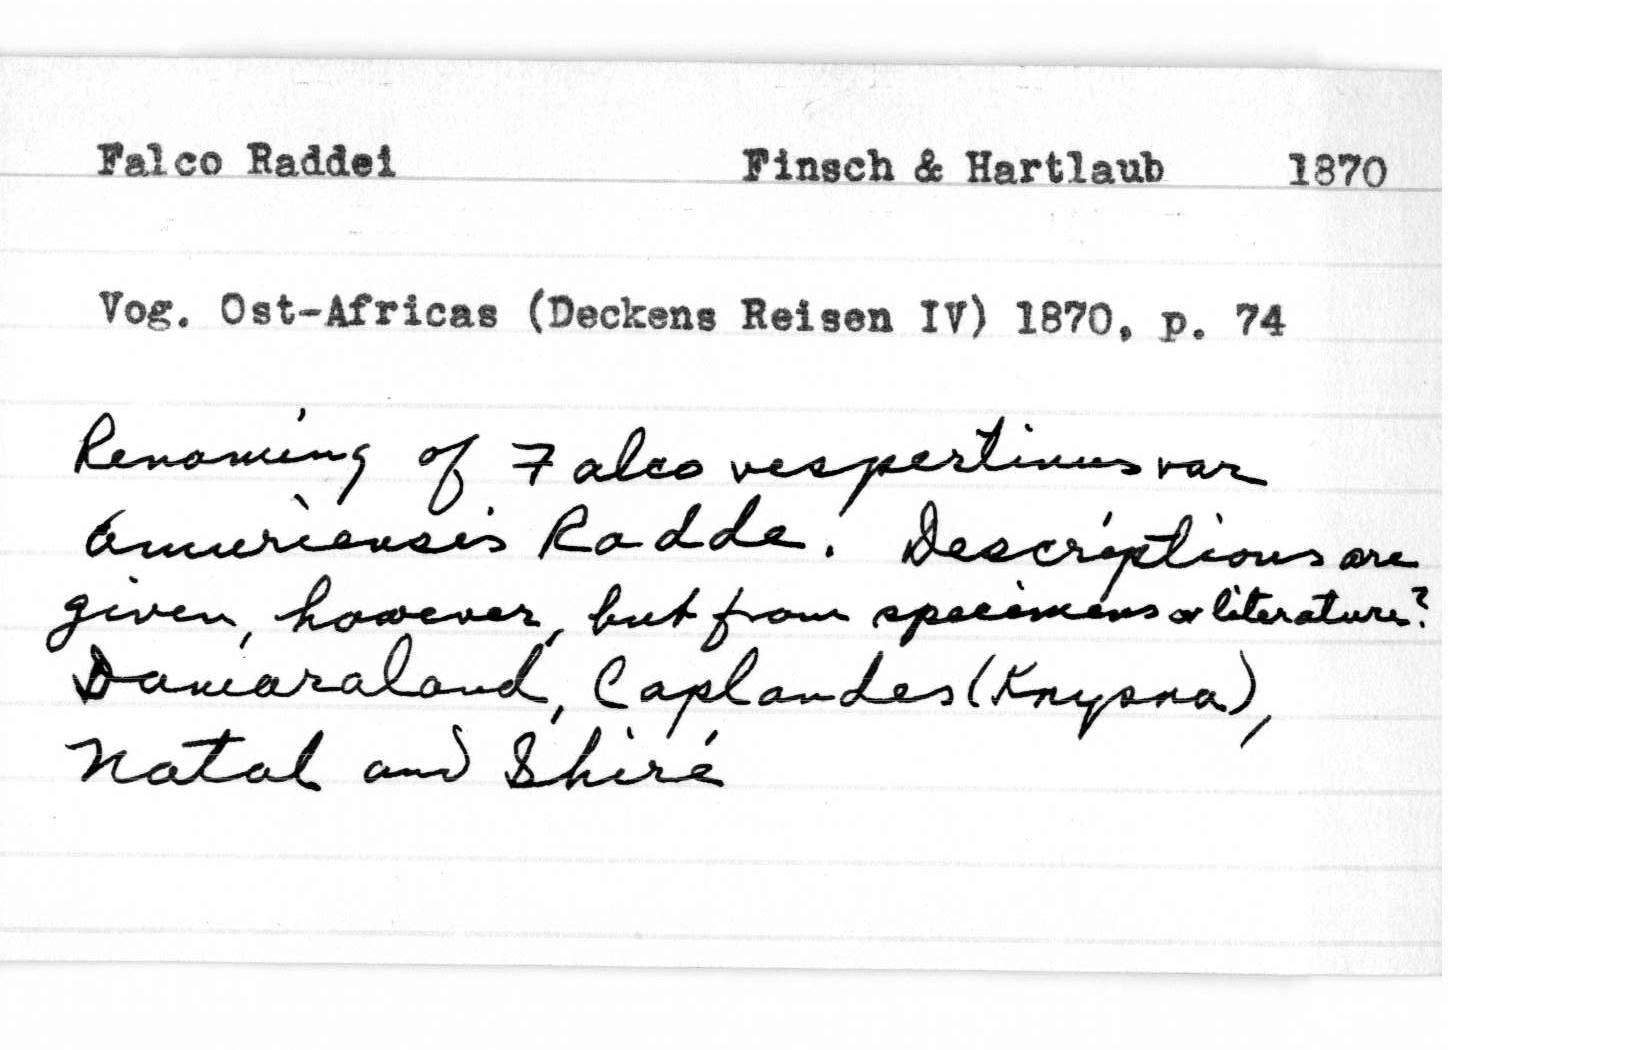 Falco Raddei Finsch & Hartlaub 1870
Vog. Ost-Africas (Deckens Reisen IV) 1870, p. 74
Renaming of Falco vespertinus var
amuriensis Radde. Descriptions are
given, however, but from specimens or literature?
Damaraland, Caplandes (Knysna),
Natal and Shiré